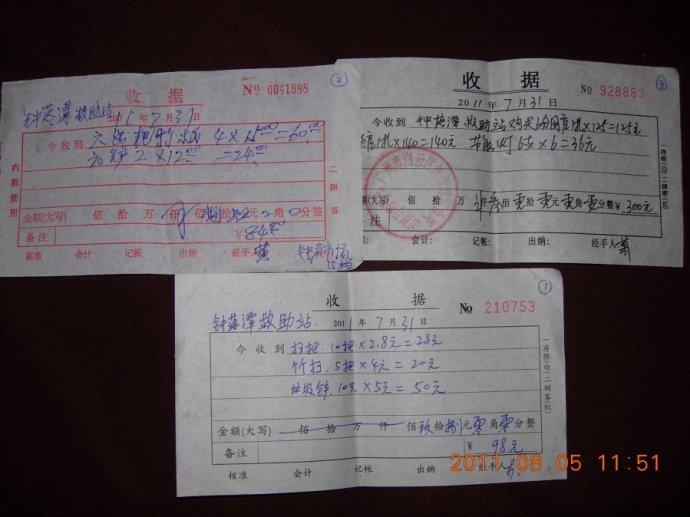 ②
收 据
№ 0041888
钟落潭救助站 2011年7月31日
今收到 4×15.00=60.00
2×12.00=24.00
内部使用
二顾客
金额(大写) 佰 拾 万 仟 佰 捌拾 元 角 分整
备注 ¥84.00
核准 会计 记帐 出纳 经手人 黄
③
收 据
№ 928883
2011年7月31日
今收到 钟落潭救助站 ×125=125元
×140=140元 节能灯 6支×6=36元
一存根(白)二顾客(红)
金额(大写) 佰 拾 万 仟叁佰零拾零元零角零分整¥ 300元
备注
核准: 会计: 记帐: 出纳: 经手人
①
收 据
№ 210753
钟落潭救助站 2011年7月31日
今收到 扫把 10把×2.8元=28元
竹扫 5把×4元=20元
10只×5元=50元
一存根(白)二顾客(红)
金额(大写) 佰 拾 万 仟 佰玖拾捌元零角零分整
备注 ¥ 98元
核准 会计 记帐 出纳 经手人
2011.08.05 11:51